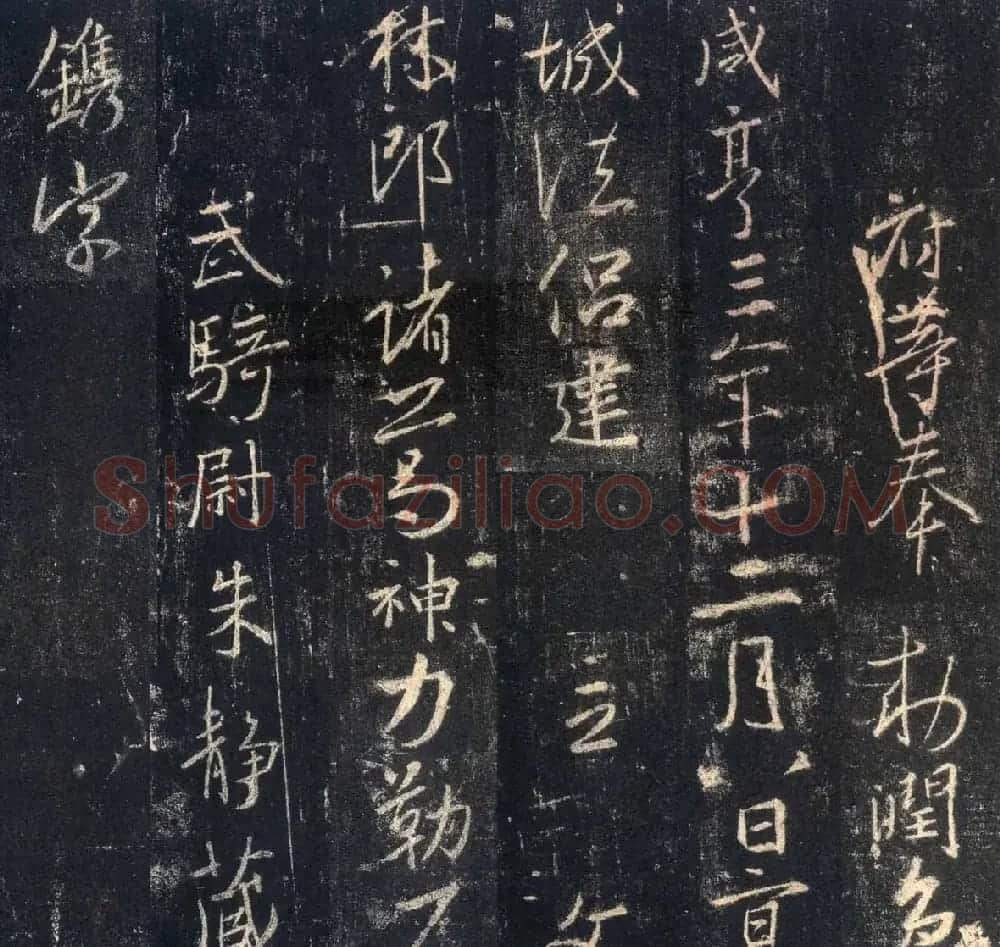 府等奉 勅潤色
咸亨三年十二月八日京
城法侣建 立 文
林郎諸葛神力勒石
武騎尉朱静藏
鐫字
Shufaziliao.COM